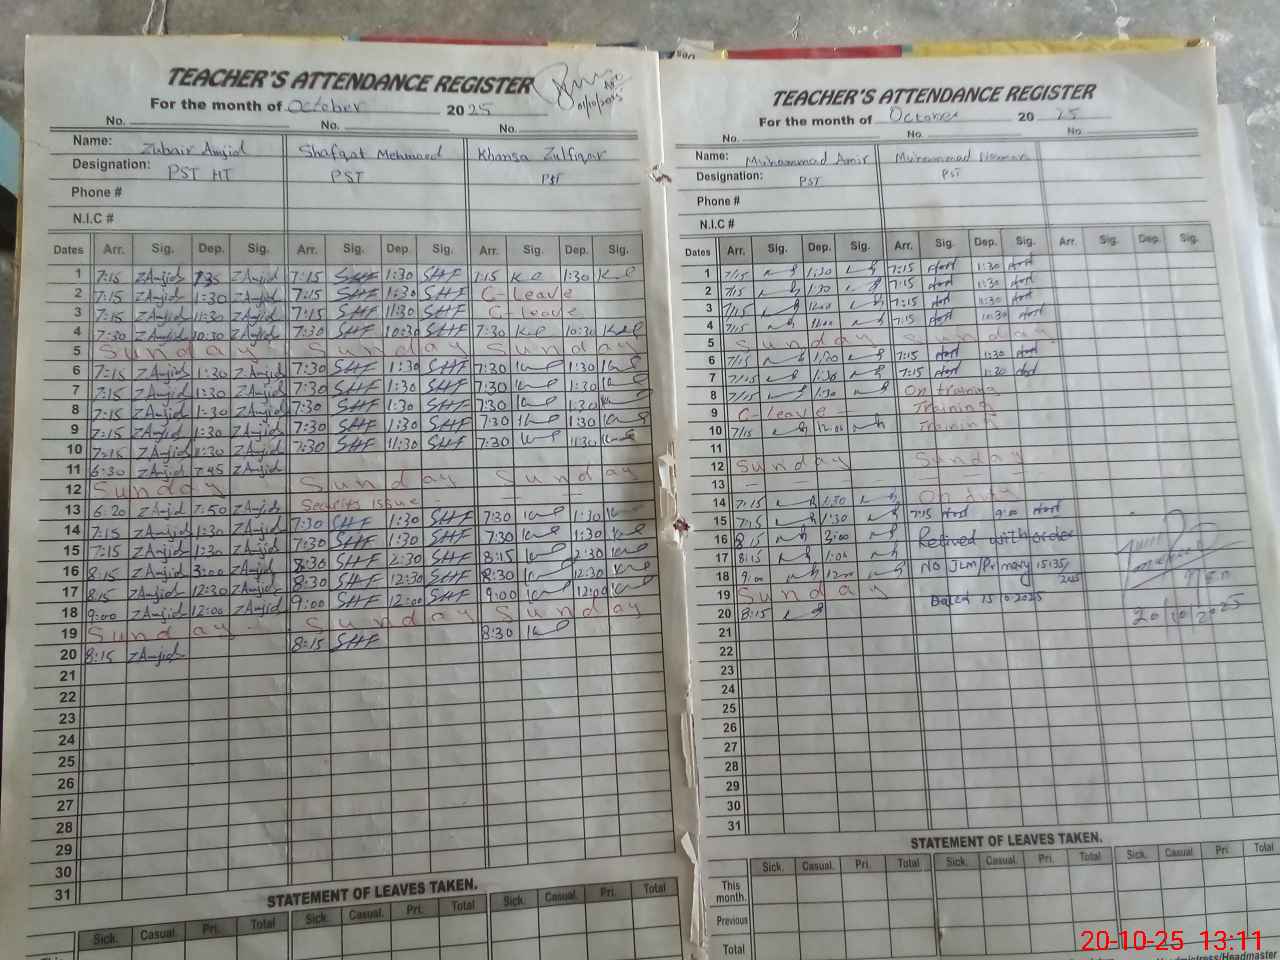 TEACHER'S ATTENDANCE REGISTER
01/10/2025
For the month of October 2025
No. No. No.
Name: Zubair Amjid Shafqat Mehmood Khansa Zulfiqar
Designation: PST HT PST PST
Phone #
N.I.C #
Dates Arr. Sig. Dep. Sig. Arr. Sig. Dep. Sig. Arr. Sig. Dep. Sig.
1 7:15 ZAmjid ZAmjid 7:15 SHF 1:30 SHF 1:30
2 7:15 ZAmjid 1:30 ZAmjid 7:15 SHF 1:30 SHF C-Leave
3 7:15 ZAmjid 11:30 ZAmjid 7:15 SHF 11:30 SHF C-Leave
4 7:30 ZAmjid 10:30 ZAmjid 7:30 SHF 10:30 SHF 7:30 10:30
5 Sunday Sunday Sunday
6 7:15 ZAmjid 1:30 ZAmjid 7:30 SHF 1:30 SHF 7:30 1:30
7 7:15 ZAmjid 1:30 ZAmjid 7:30 SHF 1:30 SHF 7:30 1:30
8 7:15 ZAmjid 1:30 ZAmjid 7:30 SHF 1:30 SHF 7:30 1:30
9 7:15 ZAmjid 1:30 ZAmjid 7:30 SHF 1:30 SHF 7:30 1:30
10 7:15 ZAmjid 11:30 ZAmjid 7:30 SHF 11:30 SHF 7:30 11:30
11 6:30 ZAmjid 7:45 ZAmjid
12 Sunday Sunday Sunday
13 6:20 ZAmjid 7:50 ZAmjid Security issue
14 7:15 ZAmjid 1:30 ZAmjid 7:30 SHF 1:30 SHF 7:30 1:30
15 7:15 ZAmjid 1:30 ZAmjid 7:30 SHF 1:30 SHF 7:30 1:30
16 8:15 ZAmjid 3:00 ZAmjid 8:30 SHF 2:30 SHF 8:15 2:30
17 8:15 ZAmjid 12:30 ZAmjid 8:30 SHF 12:30 SHF 8:30 12:30
18 9:00 ZAmjid 12:00 ZAmjid 9:00 SHF 12:00 SHF 9:00 12:00
19 Sunday Sunday Sunday
20 8:15 ZAmjid 8:15 SHF 8:30
21
22
23
24
25
26
27
28
29
30
31
STATEMENT OF LEAVES TAKEN.
Sick. Casual. Pri. Total Sick. Casual. Pri. Total Sick. Casual. Pri. Total
TEACHER'S ATTENDANCE REGISTER
For the month of October 2025
No. No. No.
Name: Muhammad Amir Muhammad
Designation: PST PST
Phone #
N.I.C #
Dates Arr. Sig. Dep. Sig. Arr. Sig. Dep. Sig. Arr. Sig. Dep. Sig.
1 7/15 1:30 7:15 1:30
2 7/15 1:30 7:15 1:30
3 7/15 7:15 11:30
4 7/15 7:15 10:30
5 Sunday Sunday
6 7/15 1:30 7:15 1:30
7 7/15 1:30 7:15 1:30
8 7/15 1:30 On training
9 C-leave Training
10 7/15 12:00 Training
11
12 Sunday Sunday
13
14 7:15 1:30 On duty
15 7:15 1:30 7:15 9:00
16 8:15 3:00 Relived with order
17 8:15 1:00 No
18 9:00 12:00
19 Sunday Dated
20 8:15 20/10/2025
21
22
23
24
25
26
27
28
29
30
31
STATEMENT OF LEAVES TAKEN.
Sick. Casual. Pri. Total Sick. Casual. Pri. Total Sick. Casual. Pri. Total
This month.
Previous
Total
20-10-25 13:11